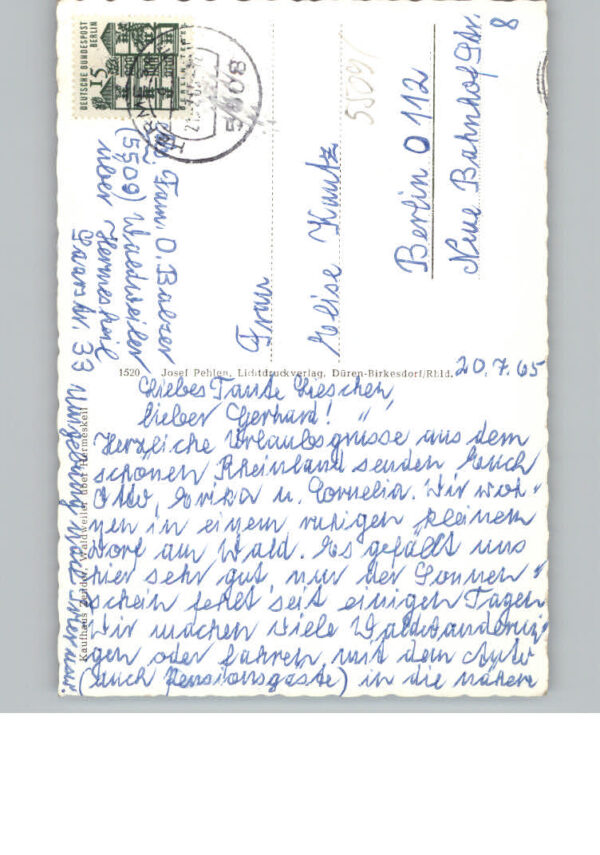 DEUTSCHE BUNDESPOST
BERLIN
15
5508
5509
Fam. O. Balzer
(5509) Waldweiler
über Hermeskeil
Saarstr. 33
Frau
Elise Kautz
Berlin O 112
Neue Bahnhofstr.
8
1520 Josef Pehlen, Lichtdruckverlag, Düren-Birkesdorf/Rhld.
Kaufhaus Zender, Waldweiler über Hermeskeil
20.7.65
Liebes Tante Lieschen,
lieber Gerhard!
Herzliche Urlaubsgrüsse aus dem
schönen Rheinland senden Euch
Otto, Erika u. Cornelia. Wir woh-
nen in einem ruhigen kleinem
Dorf am Wald. Es gefällt uns
hier sehr gut, nur der Sonnen-
schein fehlt seit einigen Tagen
Wir machen viele Waldwanderun-
gen oder fahren mit dem Auto
(auch Pensionsgäste) in die nähere
Umgebung